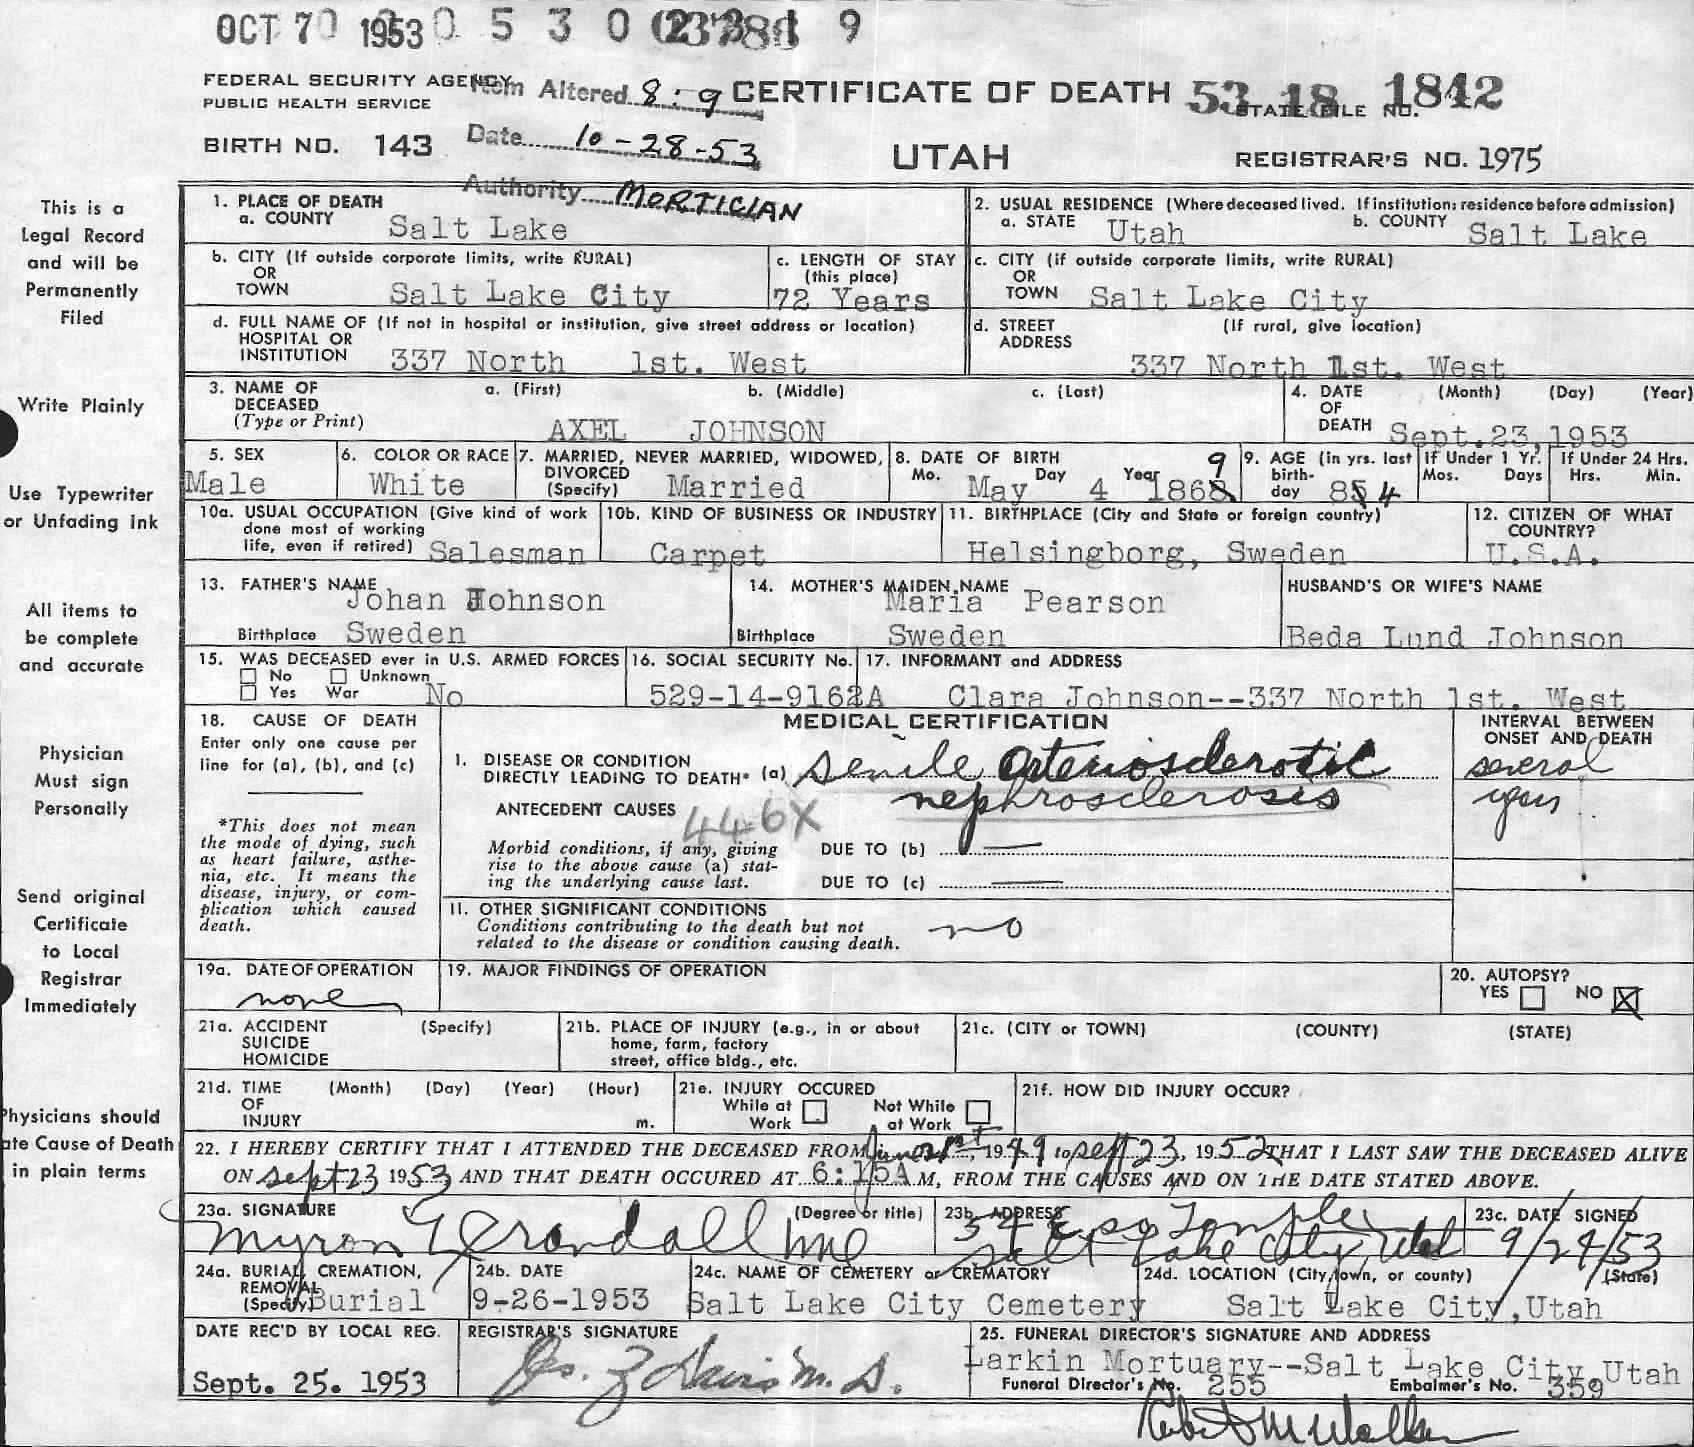 OCT 7 1953
FEDERAL SECURITY AGENCY
PUBLIC HEALTH SERVICE
Item Altered 8-9
CERTIFICATE OF DEATH
53 18 1842
STATE FILE NO.
BIRTH NO. 143
Date 10-28-53
UTAH
REGISTRAR'S NO. 1975
Authority MORTICIAN
This is a
Legal Record
and will be
Permanently
Filed
Write Plainly
Use Typewriter
or Unfading Ink
All items to
be complete
and accurate
Physician
Must sign
Personally
Send original
Certificate
to Local
Registrar
Immediately
Physicians should
ate Cause of Death
in plain terms
1. PLACE OF DEATH
a. COUNTY Salt Lake
2. USUAL RESIDENCE (Where deceased lived. If institution: residence before admission)
a. STATE Utah b. COUNTY Salt Lake
b. CITY (If outside corporate limits, write RURAL)
OR
TOWN Salt Lake City
c. LENGTH OF STAY
(this place)
72 Years
c. CITY (if outside corporate limits, write RURAL)
OR
TOWN Salt Lake City
d. FULL NAME OF (If not in hospital or institution, give street address or location)
HOSPITAL OR
INSTITUTION 337 North 1st. West
d. STREET (If rural, give location)
ADDRESS
337 North 1st. West
3. NAME OF a. (First) b. (Middle) c. (Last)
DECEASED
(Type or Print) AXEL JOHNSON
4. DATE (Month) (Day) (Year)
OF
DEATH Sept.23,1953
5. SEX
Male
6. COLOR OR RACE
White
7. MARRIED, NEVER MARRIED, WIDOWED,
DIVORCED
(Specify) Married
8. DATE OF BIRTH 9
Mo. Day Year
May 4 1868
9. AGE (in yrs. last
birth-
day 85 4
If Under 1 Yr.
Mos. Days
If Under 24 Hrs.
Hrs. Min.
10a. USUAL OCCUPATION (Give kind of work
done most of working
life, even if retired) Salesman
10b. KIND OF BUSINESS OR INDUSTRY
Carpet
11. BIRTHPLACE (City and State or foreign country)
Helsingborg, Sweden
12. CITIZEN OF WHAT
COUNTRY?
U.S.A.
13. FATHER'S NAME
Johan Johnson
Birthplace Sweden
14. MOTHER'S MAIDEN NAME
Maria Pearson
Birthplace Sweden
HUSBAND'S OR WIFE'S NAME
Beda Lund Johnson
15. WAS DECEASED ever in U.S. ARMED FORCES
No Unknown
Yes War No
16. SOCIAL SECURITY No.
529-14-9162A
17. INFORMANT and ADDRESS
Clara Johnson--337 North 1st. West
18. CAUSE OF DEATH
Enter only one cause per
line for (a), (b), and (c)
*This does not mean
the mode of dying, such
as heart failure, asthe-
nia, etc. It means the
disease, injury, or com-
plication which caused
death.
MEDICAL CERTIFICATION
I. DISEASE OR CONDITION
DIRECTLY LEADING TO DEATH* (a) senile arteriosclerotic
nephrosclerosis
ANTECEDENT CAUSES
446X
Morbid conditions, if any, giving
rise to the above cause (a) stat-
ing the underlying cause last.
DUE TO (b)
DUE TO (c)
II. OTHER SIGNIFICANT CONDITIONS
Conditions contributing to the death but not
related to the disease or condition causing death.
no
INTERVAL BETWEEN
ONSET AND DEATH
several
years
19a. DATE OF OPERATION
none
19. MAJOR FINDINGS OF OPERATION
20. AUTOPSY?
YES NO
21a. ACCIDENT (Specify)
SUICIDE
HOMICIDE
21b. PLACE OF INJURY (e.g., in or about
home, farm, factory
street, office bldg., etc.
21c. (CITY or TOWN) (COUNTY) (STATE)
21d. TIME (Month) (Day) (Year) (Hour)
OF
INJURY m.
21e. INJURY OCCURED
While at Not While
Work at Work
21f. HOW DID INJURY OCCUR?
22. I HEREBY CERTIFY THAT I ATTENDED THE DECEASED FROM 1949 to Sept 23, 1952 THAT I LAST SAW THE DECEASED ALIVE
ON Sept 23 1953 AND THAT DEATH OCCURED AT 6:15A M, FROM THE CAUSES AND ON THE DATE STATED ABOVE.
23a. SIGNATURE (Degree or title)
Myron L Crandall MD
23b. ADDRESS
34 E So Temple
Salt Lake City, Utah
23c. DATE SIGNED
9/24/53
24a. BURIAL, CREMATION,
REMOVAL
(Specify) Burial
24b. DATE
9-26-1953
24c. NAME OF CEMETERY or CREMATORY
Salt Lake City Cemetery
24d. LOCATION (City, town, or county) (State)
Salt Lake City, Utah
DATE REC'D BY LOCAL REG.
Sept. 25. 1953
REGISTRAR'S SIGNATURE
Davis M.D.
25. FUNERAL DIRECTOR'S SIGNATURE AND ADDRESS
Larkin Mortuary--Salt Lake City, Utah
Funeral Director's No. 255 Embalmer's No. 359